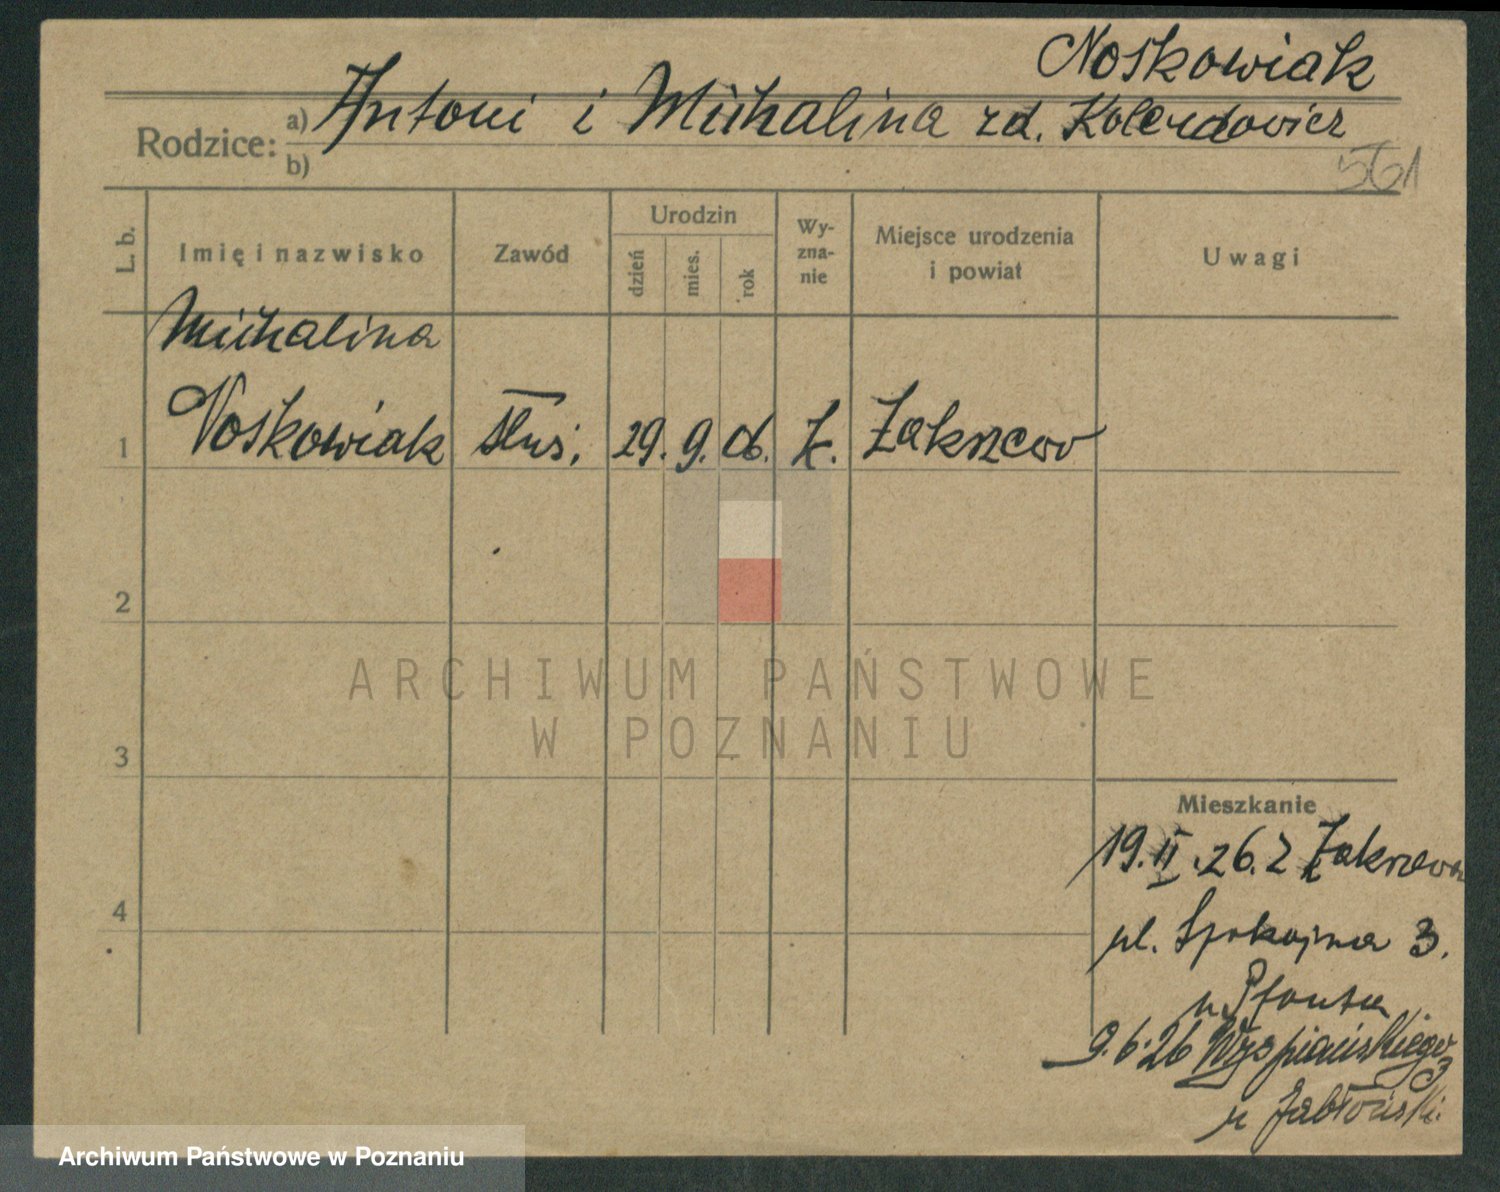 Noskowiak
Rodzice: a) Antoni i Michalina zd. Kolendowicz
b)
561
L. b. Imię i nazwisko Zawód Urodzin dzień mies. rok Wyznanie Miejsce urodzenia i powiat Uwagi
Michalina
1 Noskowiak służ. 29. 9. 06. k. Zakrzewo
2
3
4
ARCHIWUM PAŃSTWOWE
W POZNANIU
Mieszkanie
19.II.26. z Zakrzewa
ul. Spokojna 3.
u
9.6.26 Wyspiańskiego
3
u Jabłoński.
Archiwum Państwowe w Poznaniu